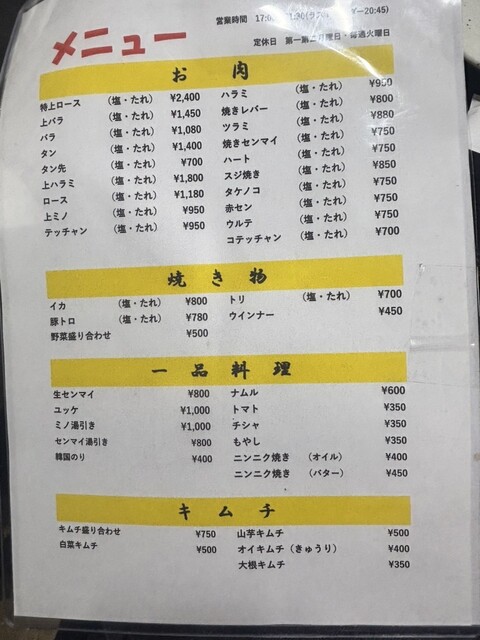 営業時間 17:0 :30(ラストオーダー20:45)
メニュー
定休日 第一第三月曜日・毎週火曜日
お肉
特上ロース (塩・たれ) ¥2,400
上バラ (塩・たれ) ¥1,450
バラ (塩・たれ) ¥1,080
タン (塩・たれ) ¥1,400
タン先 (塩・たれ) ¥700
上ハラミ (塩・たれ) ¥1,800
ロース (塩・たれ) ¥1,180
上ミノ (塩・たれ) ¥950
テッチャン (塩・たれ) ¥950
ハラミ (塩・たれ) ¥950
焼きレバー (塩・たれ) ¥800
ツラミ (塩・たれ) ¥880
焼きセンマイ (塩・たれ) ¥750
ハート (塩・たれ) ¥750
スジ焼き (塩・たれ) ¥850
タケノコ (塩・たれ) ¥750
赤セン (塩・たれ) ¥750
ウルテ (塩・たれ) ¥750
コテッチャン (塩・たれ) ¥700
焼き物
イカ (塩・たれ) ¥800
豚トロ (塩・たれ) ¥780
野菜盛り合わせ ¥500
トリ (塩・たれ) ¥700
ウインナー ¥450
一品料理
生センマイ ¥800
ユッケ ¥1,000
ミノ湯引き ¥1,000
センマイ湯引き ¥800
韓国のり ¥400
ナムル ¥600
トマト ¥350
チシャ ¥350
もやし ¥350
ニンニク焼き (オイル) ¥400
ニンニク焼き (バター) ¥450
キムチ
キムチ盛り合わせ ¥750
白菜キムチ ¥500
山芋キムチ ¥500
オイキムチ(きゅうり) ¥400
大根キムチ ¥350